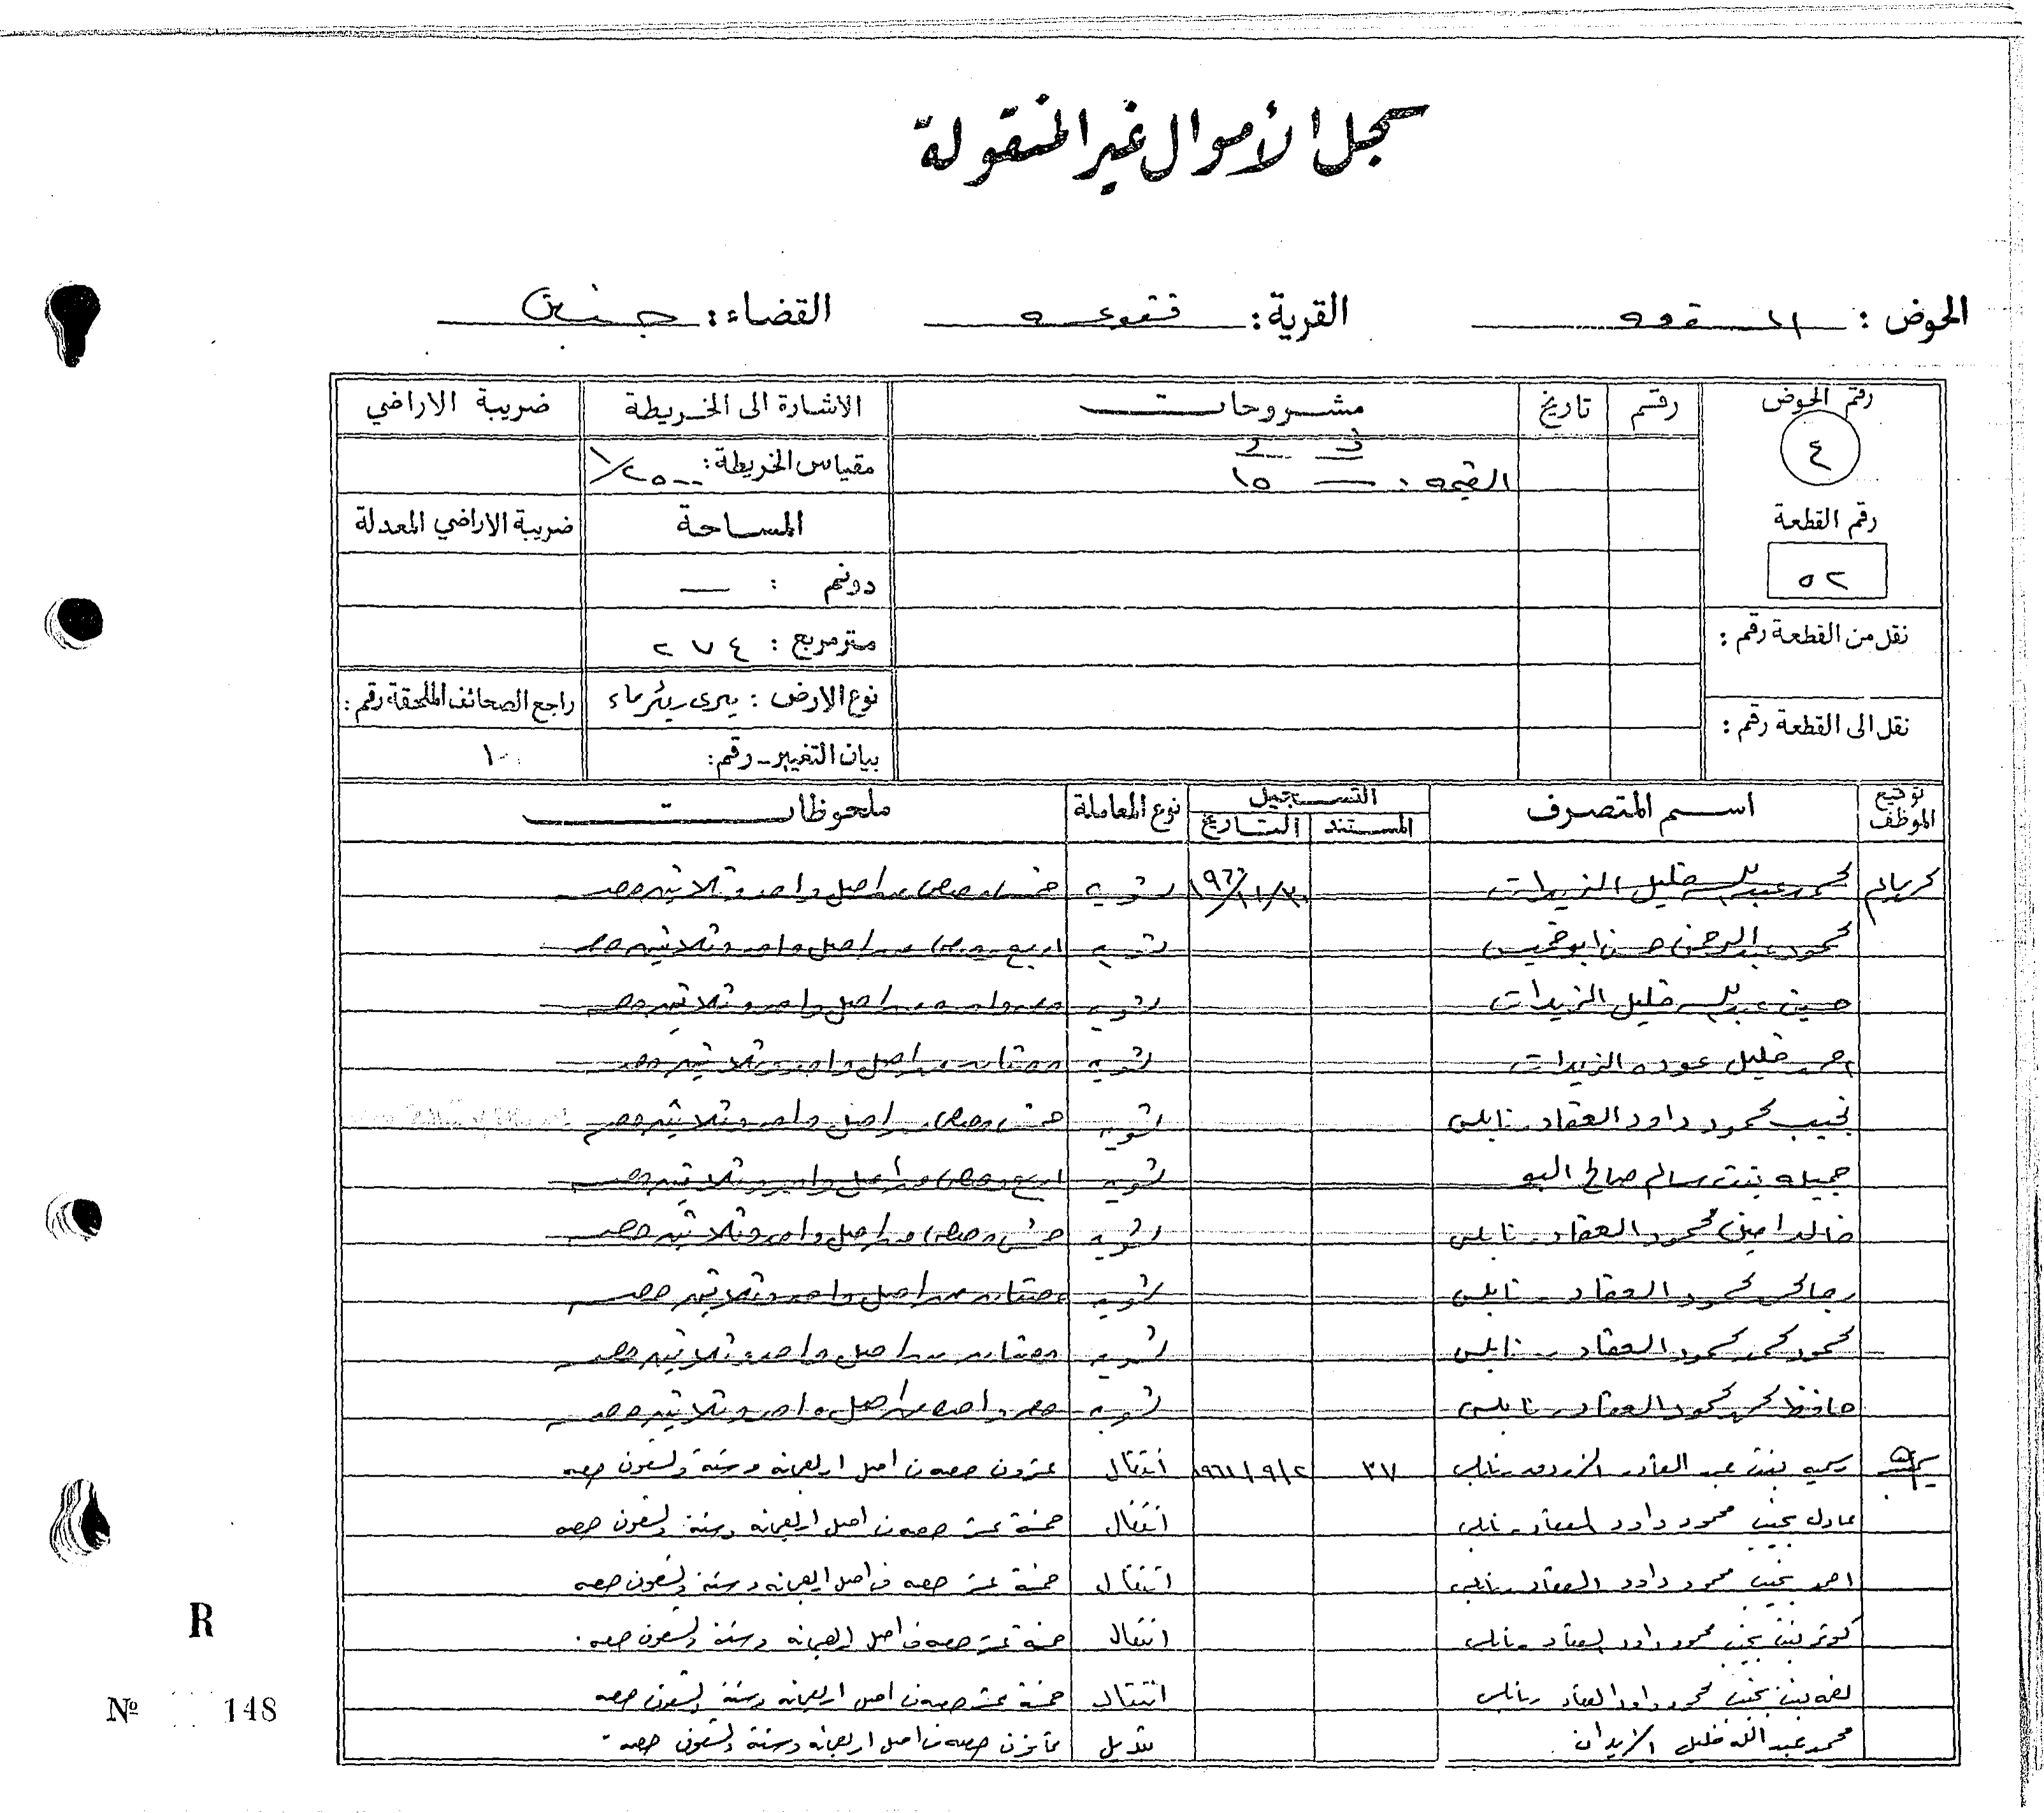 سجل الأموال غير المنقولة
الحوض : القرية : فقوعه القضاء : جنين
رقم الحوض رقم تاريخ مشروحات الاشارة الى الخريطة ضريبة الاراضي
٤ القيمه : — ١٥ مقياس الخريطة : ١/٢٥٠٠
رقم القطعة المساحة ضريبة الاراضي المعدلة
٥٢ دونم : —
نقل من القطعة رقم : متر مربع : ٢٧٤
نوع الارض : ميري بئر ماء راجع الصحائف الملحقة رقم :
نقل الى القطعة رقم : بيان التغيير - رقم : ١٠
توقيع الموظف اسم المتصرف التسجيل نوع المعاملة ملحوظات
المستند التاريخ
محمد عبدالله خليل الزيدات تسويه خمس حصص من اصل واحد وثلاثين حصه
محمود عبدالرحمن حسن ابو خميس تسويه اربع حصص من اصل واحد وثلاثين حصه
حسين عبدالله خليل الزيدات تسويه حصه واحده من اصل واحد وثلاثين حصه
احمد خليل عوده الزيدات تسويه حصتان من اصل واحد وثلاثين حصه
نجيب محمود داود العقاد - نابلس تسويه خمس حصص من اصل واحد وثلاثين حصه
جميله بنت سالم صالح البو تسويه اربع حصص من اصل واحد وثلاثين حصه
خالد امين محمود العقاد - نابلس تسويه خمس حصص من اصل واحد وثلاثين حصه
محمود العقاد - نابلس تسويه حصتان من اصل واحد وثلاثين حصه
محمود محمد محمود العقاد - نابلس تسويه حصتان من اصل واحد وثلاثين حصه
حافظ محمد محمود العقاد - نابلس تسويه حصه واحده من اصل واحد وثلاثين حصه
بنت عبد القادر نابلس ٣٧ انتقال عشرون حصه من اصل اربعمائه وستة وتسعون حصه
عادل نجيب محمود داود العقاد - نابلس انتقال خمسة عشر حصه من اصل اربعمائه وستة وتسعون حصه
احمد نجيب محمود داود العقاد - نابلس انتقال خمسة عشر حصه من اصل اربعمائه وستة وتسعون حصه
كوثر بنت نجيب محمود داود العقاد - نابلس انتقال خمسة عشر حصه من اصل اربعمائه وستة وتسعون حصه
بنت نجيب محمود داود العقاد - نابلس انتقال خمسة عشر حصه من اصل اربعمائه وستة وتسعون حصه
محمد عبدالله خليل الزيدات تبديل ثمانون حصه من اصل اربعمائه وستة وتسعون حصه
R
Nº 148